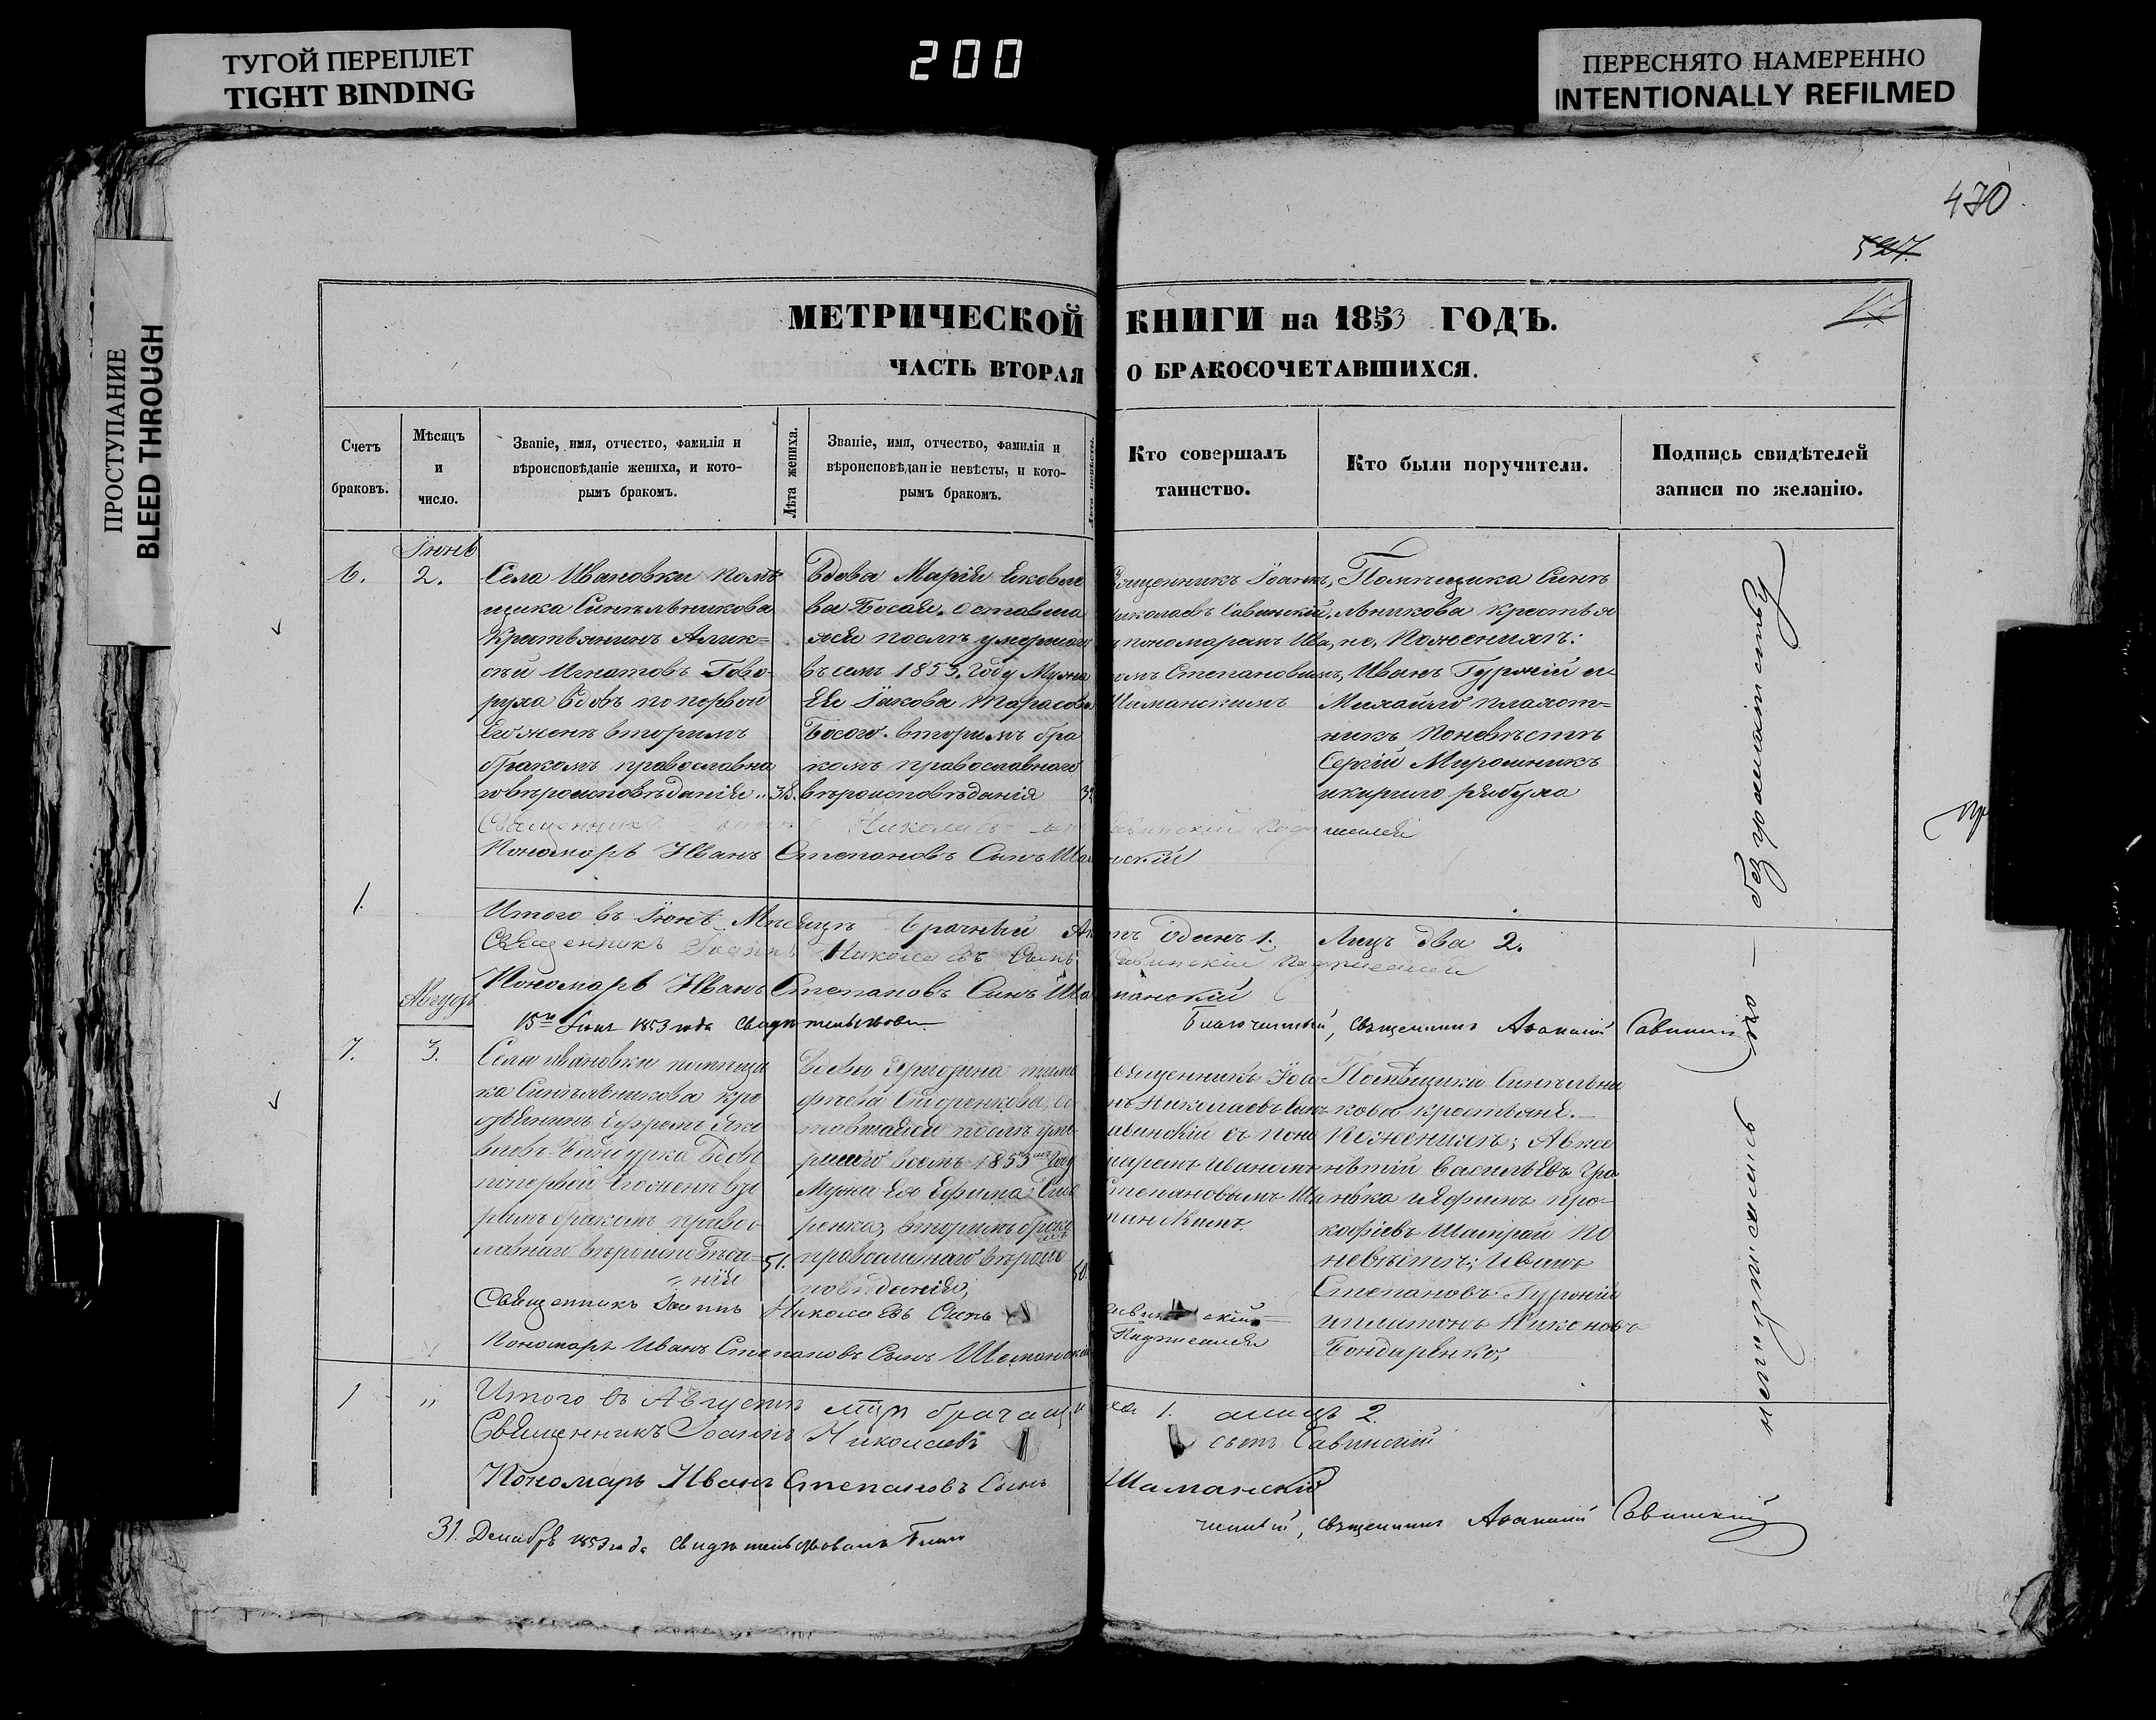 ТУГОЙ ПЕРЕПЛЕТ
TIGHT BINDING
200
ПЕРЕСНЯТО НАМЕРЕННО
INTENTIONALLY REFILMED
ПРОСТУПАНИЕ
BLEED THROUGH
470
527.
МЕТРИЧЕСКОЙ КНИГИ на 1853 ГОДЪ.
ЧАСТЬ ВТОРАЯ О БРАКОСОЧЕТАВШИХСЯ.
Счетъ
браковъ.
Мѣсяцъ
и
число.
Званіе, имя, отчество, фамилія и
вѣроисповѣданіе жениха, и кото-
рымъ бракомъ.
Лѣта жениха.
Званіе, имя, отчество, фамилія и
вѣроисповѣданіе невѣсты, и кото-
рымъ бракомъ.
Лѣта невѣсты.
Кто совершалъ
таинство.
Кто были поручители.
Подпись свидѣтелей
записи по желанію.
6.
Іюнь
2.
Села Ивановки помѣ
щика Синѣльникова
Крестьянинъ Алек=
сѣй Игнатовъ Гово
руха вдовъ по первой
его женѣ вторимъ
бракомъ православна
го вѣроисповѣданія
38.
Вдова Марія Яковле
ва Босая. оставша
яся послѣ умершаго
въ семъ 1853. году Мужа
Ея Іакова Тарасова
Босого. вторимъ бра
комъ православнаго
вѣроисповѣданія
Священникъ Іоаннъ
Николаевъ Савинскій,
съ пономаремъ Ива
номъ Степановимъ
Шаманскимъ
Помѣщика Синѣ
льникова крестья
не, Поженихѣ:
Иванъ Гуржій и
Михайло плахот=
никъ Поневѣстѣ
Сергій Мирошникъ
икирило рябуха
Священникъ Николаевъ Савинскій
Пономарь Иванъ Степановъ Сынъ Шаманскій
1.
Итого въ Іюнѣ Мѣсяцѣ брачный Актъ одинъ 1. Лицъ два 2.
Священникъ Іоаннъ Николаевъ Сынъ Савинскій
Пономарь Иванъ Степановъ Сынъ Шаманскій
15го Іюня 1853 года свидѣтельствовалъ Благочинный, священникъ Аѳанасій Савинскій
Августъ
7.
3.
Села ивановки помѣщи
ка Синѣльникова кре
стьянинъ Ефремъ Яко
влевъ вдовъ
поперьвой его женѣ вто
римъ бракомъ правос
лавнаго вѣроисповѣда=
нія
51.
Вдова тимо
фѣева Сидоренкова, ос
тавшаяся послѣ уме
ршего всемъ 1853мъ году
Мужа Ея Ефима Сидо
ренка; вторимъ брако
мъ
православнаго вѣроис
повѣданія,
50.
Священникъ Іоа
ннъ Николаевъ Синъ
Савинскій съ поно
маремъ Иваномъ
Степановымъ Ша
манскимъ.
Помѣщика Синѣльни
кова крестьяне.
Поженихѣ; Авксе
нѣтій Василѣевъ
иЯфимъ про=
кофіевъ По
невѣстѣ; Иванъ
Степановъ Гуржій
иплатонъ Никоновъ
Бондаренко;
Священникъ Іоаннъ Николаевъ Сынъ Савинскій
Подписался
Пономарь Иванъ Степановъ Сынъ Шаманскій
1
Итого въ Августѣ 1. алицъ 2.
Священникъ Іоаннъ Николаевъ сынъ Савинскій
Пономарь Иванъ Степановъ Сынъ Шаманскій
31. Декабрь 1853 года свидѣтельствовалъ Благочинный, священникъ Аѳанасій Савинскій